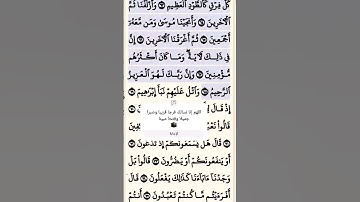 كُلُّ فِرْقٍ كَالطَّوْدِ الْعَظِيمِ ۝ وَأَزْلَفْنَا ثَمَّ
الْآخَرِينَ ۝ وَأَنجَيْنَا مُوسَىٰ وَمَن مَّعَهُ
أَجْمَعِينَ ۝ ثُمَّ أَغْرَقْنَا الْآخَرِينَ ۝ إِنَّ
فِي ذَٰلِكَ لَآيَةً وَمَا كَانَ أَكْثَرُهُم
مُّؤْمِنِينَ ۝ وَإِنَّ رَبَّكَ لَهُوَ الْعَزِيزُ
الرَّحِيمُ ۝ وَاتْلُ عَلَيْهِمْ نَبَأَ إِبْرَاهِيمَ ۝
إِذْ قَالَ
اللهم إنا نسالك فرجا قريبا وصبرا
قَالُوا نَعْبُدُ
جميلا
قَالَ هَلْ يَسْمَعُونَكُمْ إِذْ تَدْعُونَ ۝
أَوْ يَنفَعُونَكُمْ أَوْ يَضُرُّونَ ۝ قَالُوا بَلْ
وَجَدْنَا آبَاءَنَا كَذَٰلِكَ يَفْعَلُونَ ۝ قَالَ
أَفَرَأَيْتُم مَّا كُنتُمْ تَعْبُدُونَ ۝ أَنتُمْ